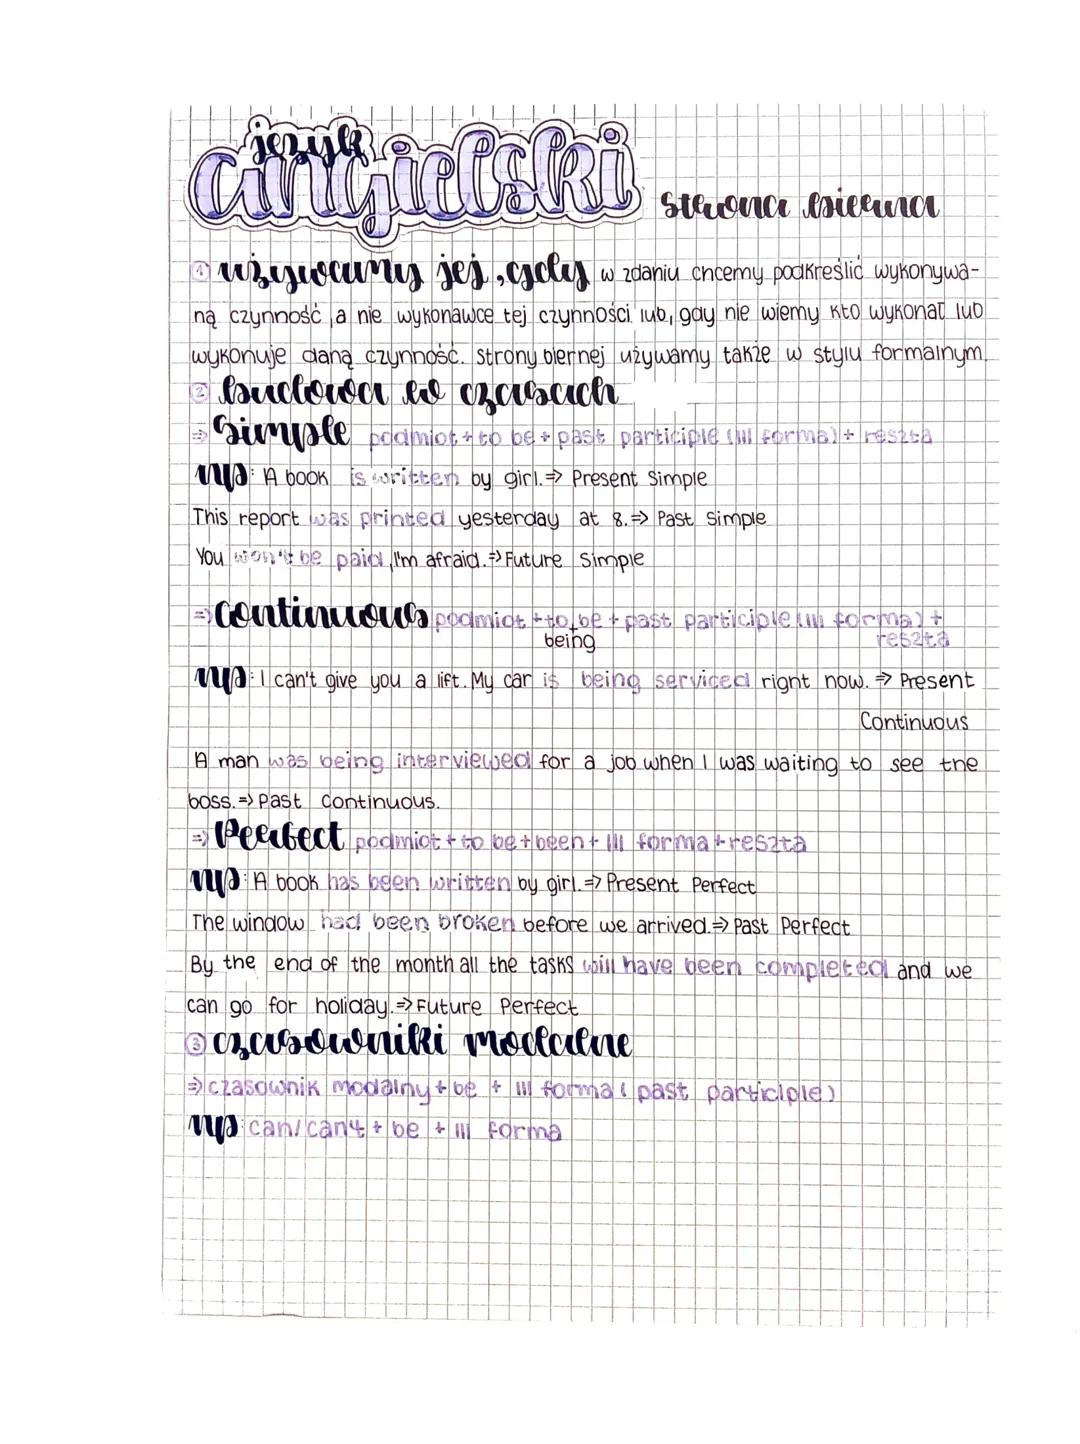 język
angielski
strona bierna
① używamy jej, gdy w zdaniu chcemy podkreślić wykonywa-
ną czynność, a nie wykonawcę tej czynności lub, gdy nie wiemy kto wykonał lub
wykonuje daną czynność. Strony biernej używamy także w stylu formalnym.
② budowa w czasach
⇒ Simple podmiot + to be + past participle (III forma) + reszta
np: A book is written by girl. ⇒ Present Simple
This report was printed yesterday at 8. ⇒ Past Simple
You won't be paid, I'm afraid. ⇒ Future Simple
⇒ continuous podmiot + to be + past participle (III forma) +
being reszta
np: I can't give you a lift. My car is being serviced right now. ⇒ Present
Continuous
A man was being interviewed for a job when I was waiting to see the
boss. ⇒ Past Continuous.
⇒ Perfect podmiot + to be + been + III forma + reszta
np: A book has been written by girl. ⇒ Present Perfect
The window had been broken before we arrived. ⇒ Past Perfect
By the end of the month all the tasks will have been completed and we
can go for holiday. ⇒ Future Perfect
③ czasowniki modalne
⇒ czasownik modalny + be + III forma (past participle)
np: can/can't + be + III forma